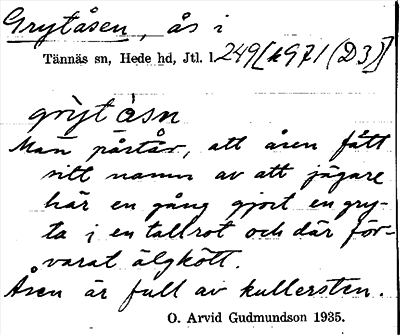 Grytåsen, ås i
Tännäs sn, Hede hd, Jtl. l. 249[k971(D3)]
grỳtåsn
Man påstår, att åsen fått
sitt namn av att jägare
här en gång gjort en gry-
ta i en tallrot och där för-
varat älgkött.
Åsen är full av kullersten.
O. Arvid Gudmundson 1935.